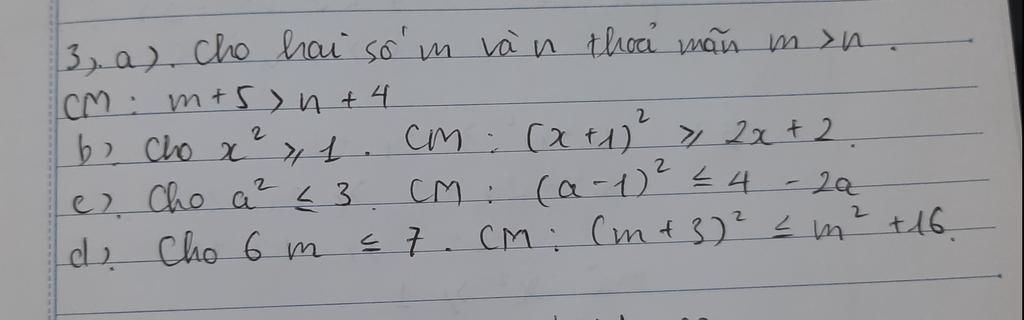 3, a). Cho hai số m và n thoả mãn m > n.
CM: m + 5 > n + 4
b). Cho x² ⩾ 1. CM: (x+1)² ⩾ 2x + 2.
c). Cho a² ≤ 3. CM: (a-1)² ≤ 4 - 2a
d). Cho 6 m ≤ 7. CM: (m + 3)² ≤ m² + 16.